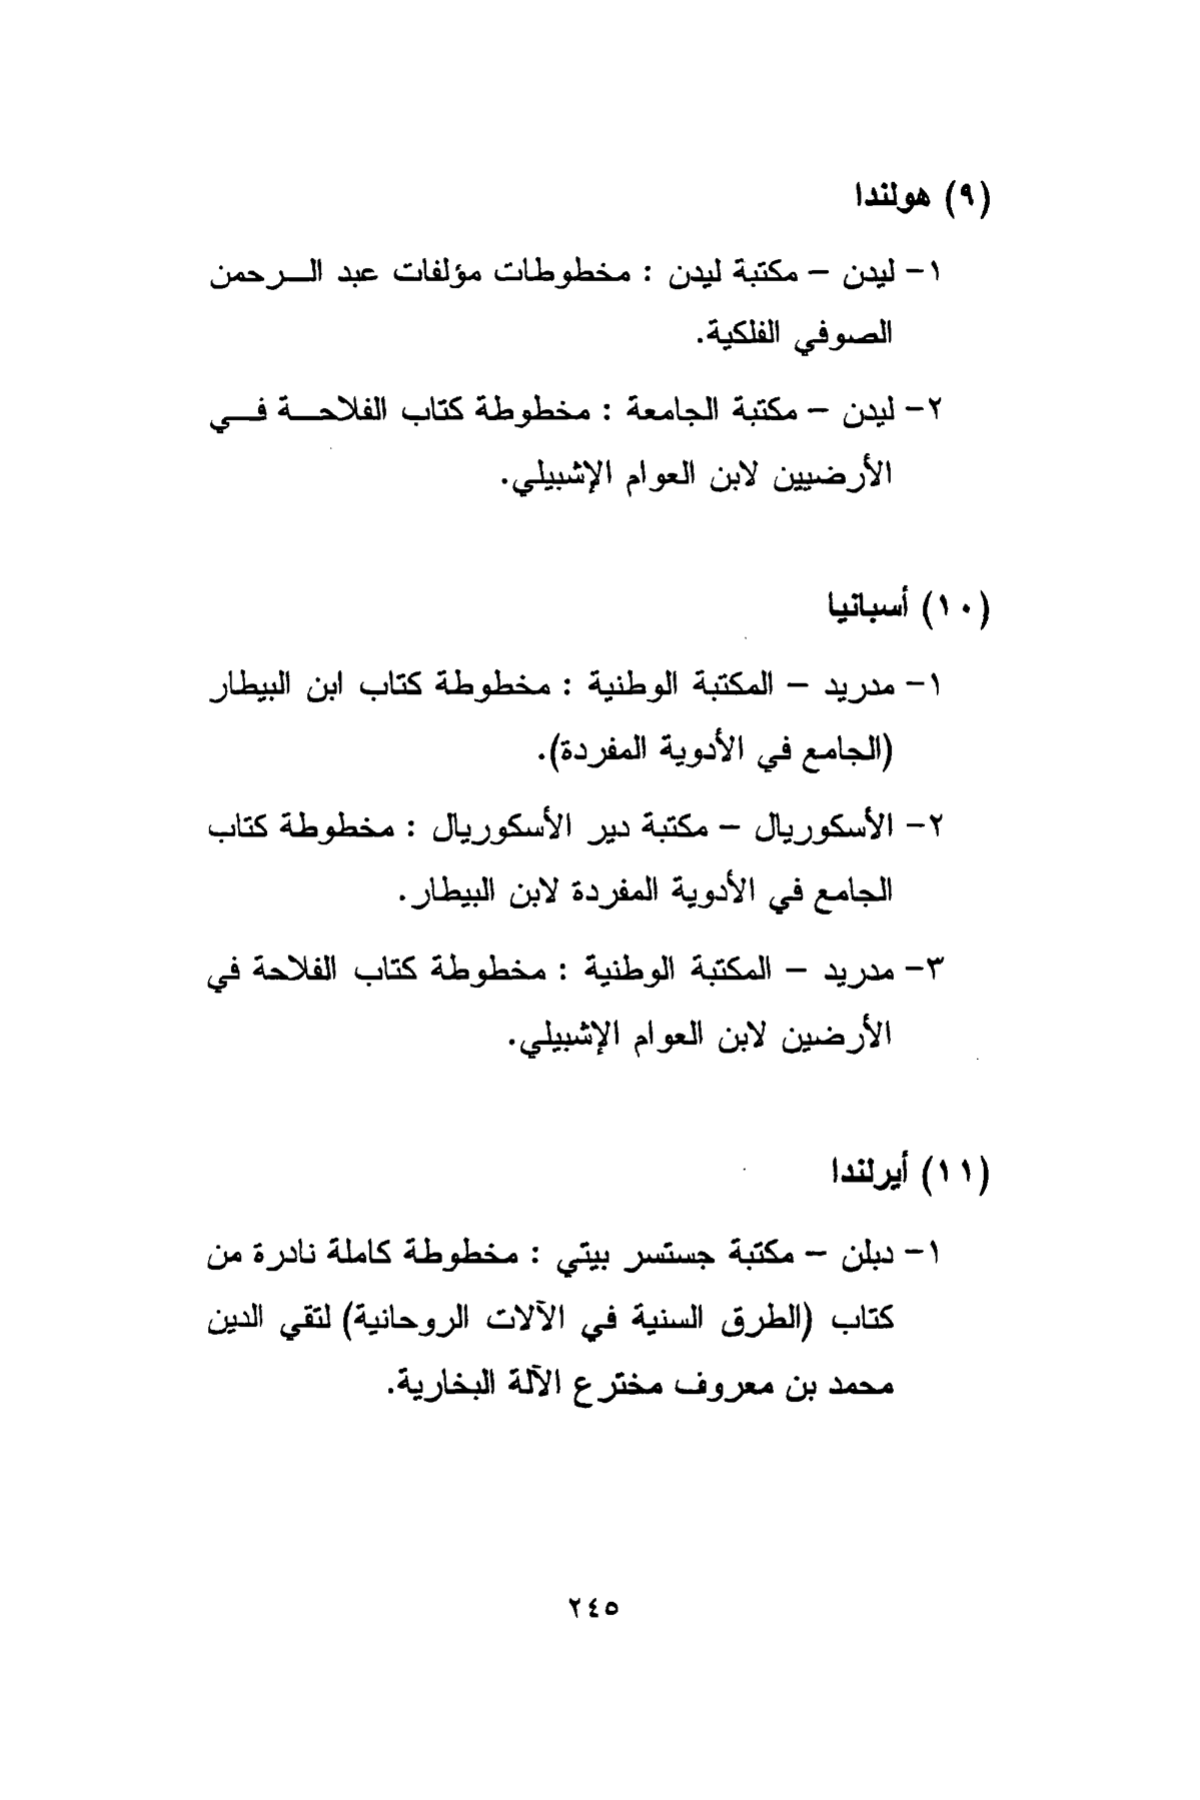 (٩) هولندا
١- ليدن – مكتبة ليدن : مخطوطات مؤلفات عبد الـــرحمن
الصوفي الفلكية.
٢- ليدن – مكتبة الجامعة : مخطوطة كتاب الفلاحـــة فـــي
الأرضيين لابن العوام الإشبيلي.
(١٠) أسبانيا
١- مدريد – المكتبة الوطنية : مخطوطة كتاب ابن البيطار
(الجامع في الأدوية المفردة).
٢- الأسكوريال – مكتبة دير الأسكوريال : مخطوطة كتاب
الجامع في الأدوية المفردة لابن البيطار.
٣- مدريد – المكتبة الوطنية : مخطوطة كتاب الفلاحة في
الأرضين لابن العوام الإشبيلي.
(١١) أيرلندا
١- دبلن – مكتبة جستسر بيتي : مخطوطة كاملة نادرة من
كتاب (الطرق السنية في الآلات الروحانية) لتقي الدين
محمد بن معروف مخترع الآلة البخارية.
٢٤٥